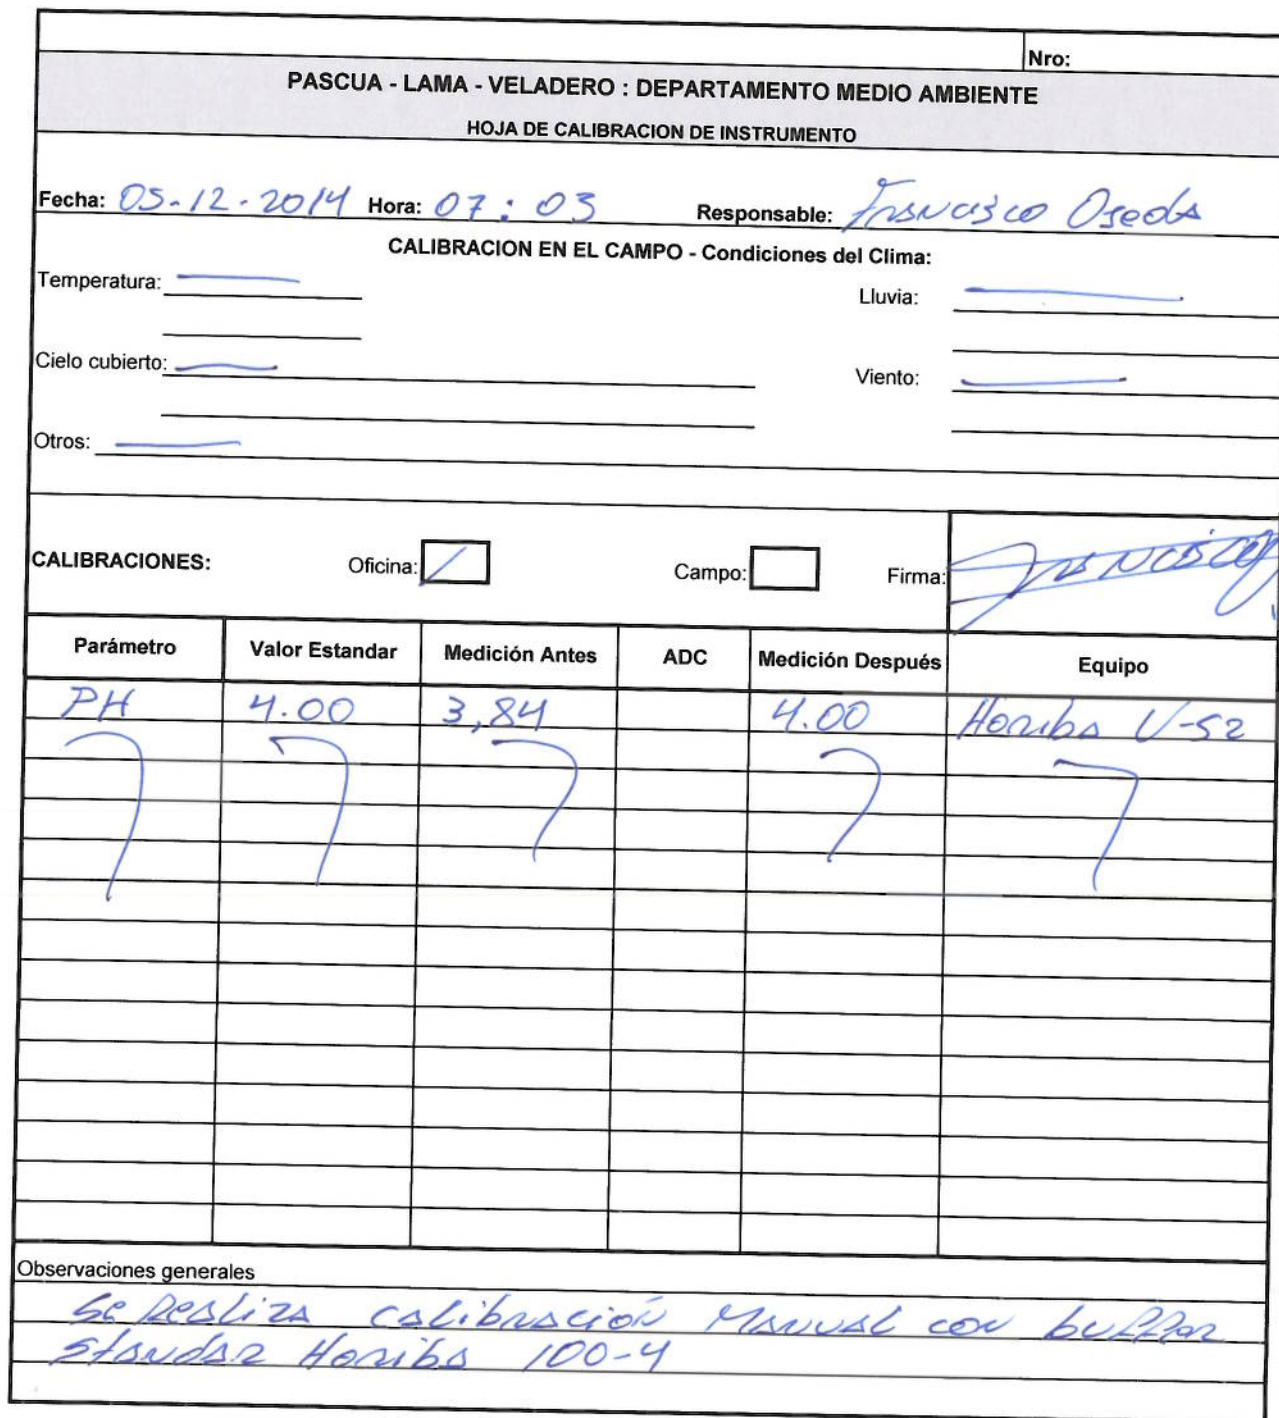 Nro:
PASCUA - LAMA - VELADERO : DEPARTAMENTO MEDIO AMBIENTE
HOJA DE CALIBRACION DE INSTRUMENTO
Fecha: 05-12-2014 Hora: 07:03 Responsable: Francisco Oseda
CALIBRACION EN EL CAMPO - Condiciones del Clima:
Temperatura: Lluvia:
Cielo cubierto: Viento:
Otros:
CALIBRACIONES: Oficina: Campo: Firma: Francisco
Parámetro Valor Estandar Medición Antes ADC Medición Después Equipo
PH 4.00 3,84 4.00 Horiba U-52
Observaciones generales
Se Realiza calibración Manual con buffer
standar Horiba 100-4